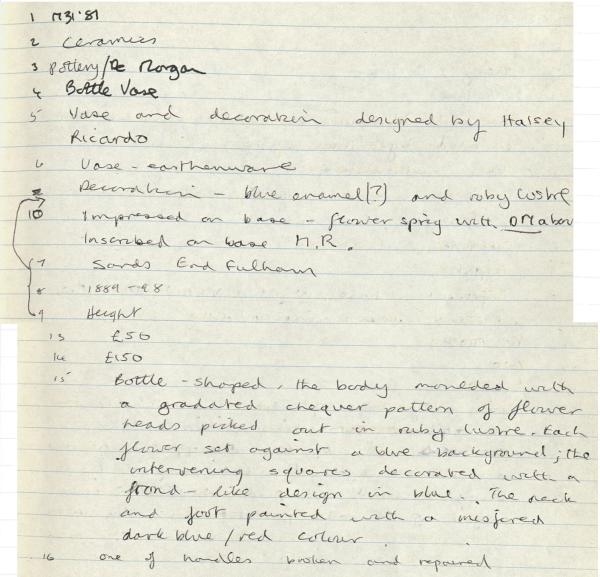 1 M31.87
2 Ceramics
3 Pottery/De Morgan
4 Bottle Vase
5 Vase and decoration designed by Halsey
Ricardo
6 Vase - earthenware
Decoration - blue enamel(?) and ruby lustre
10 Impressed on base - flower sprig with DM above
Inscribed on base H.R.
7 Sands End Fulham
8 1889-98
9 Height
13 £50
14 £150
15 Bottle-shaped, the body moulded with
a gradated chequer pattern of flower
heads picked out in ruby lustre. Each
flower set against a blue background; the
intervening squares decorated with a
frond-like design in blue. The neck
and foot painted with a misfired
dark blue/red colour.
16 one of handles broken and repaired